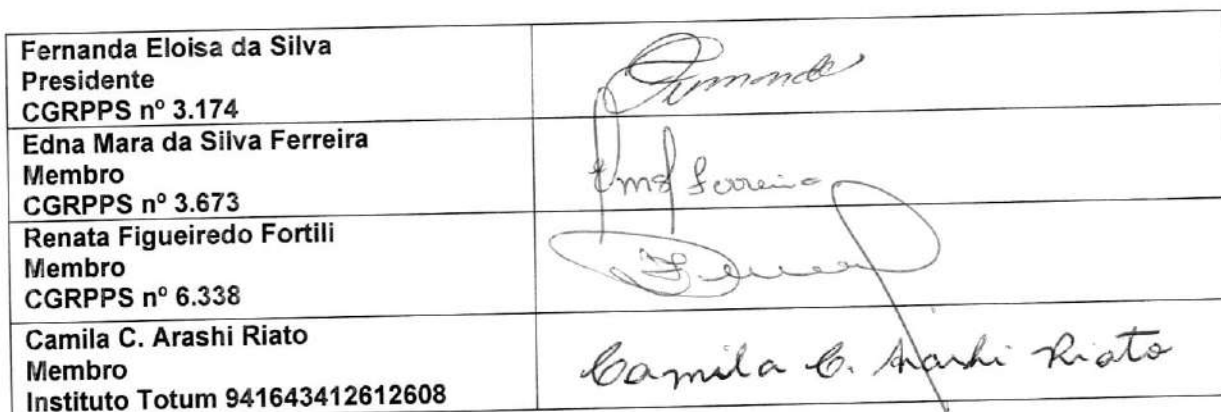 Fernanda Eloisa da Silva
Presidente
CGRPPS nº 3.174
Edna Mara da Silva Ferreira
Membro
CGRPPS nº 3.673
Ferreira
Renata Figueiredo Fortili
Membro
CGRPPS nº 6.338
Camila C. Arashi Riato
Membro
Instituto Totum 941643412612608
Camila C. Arashi Riato